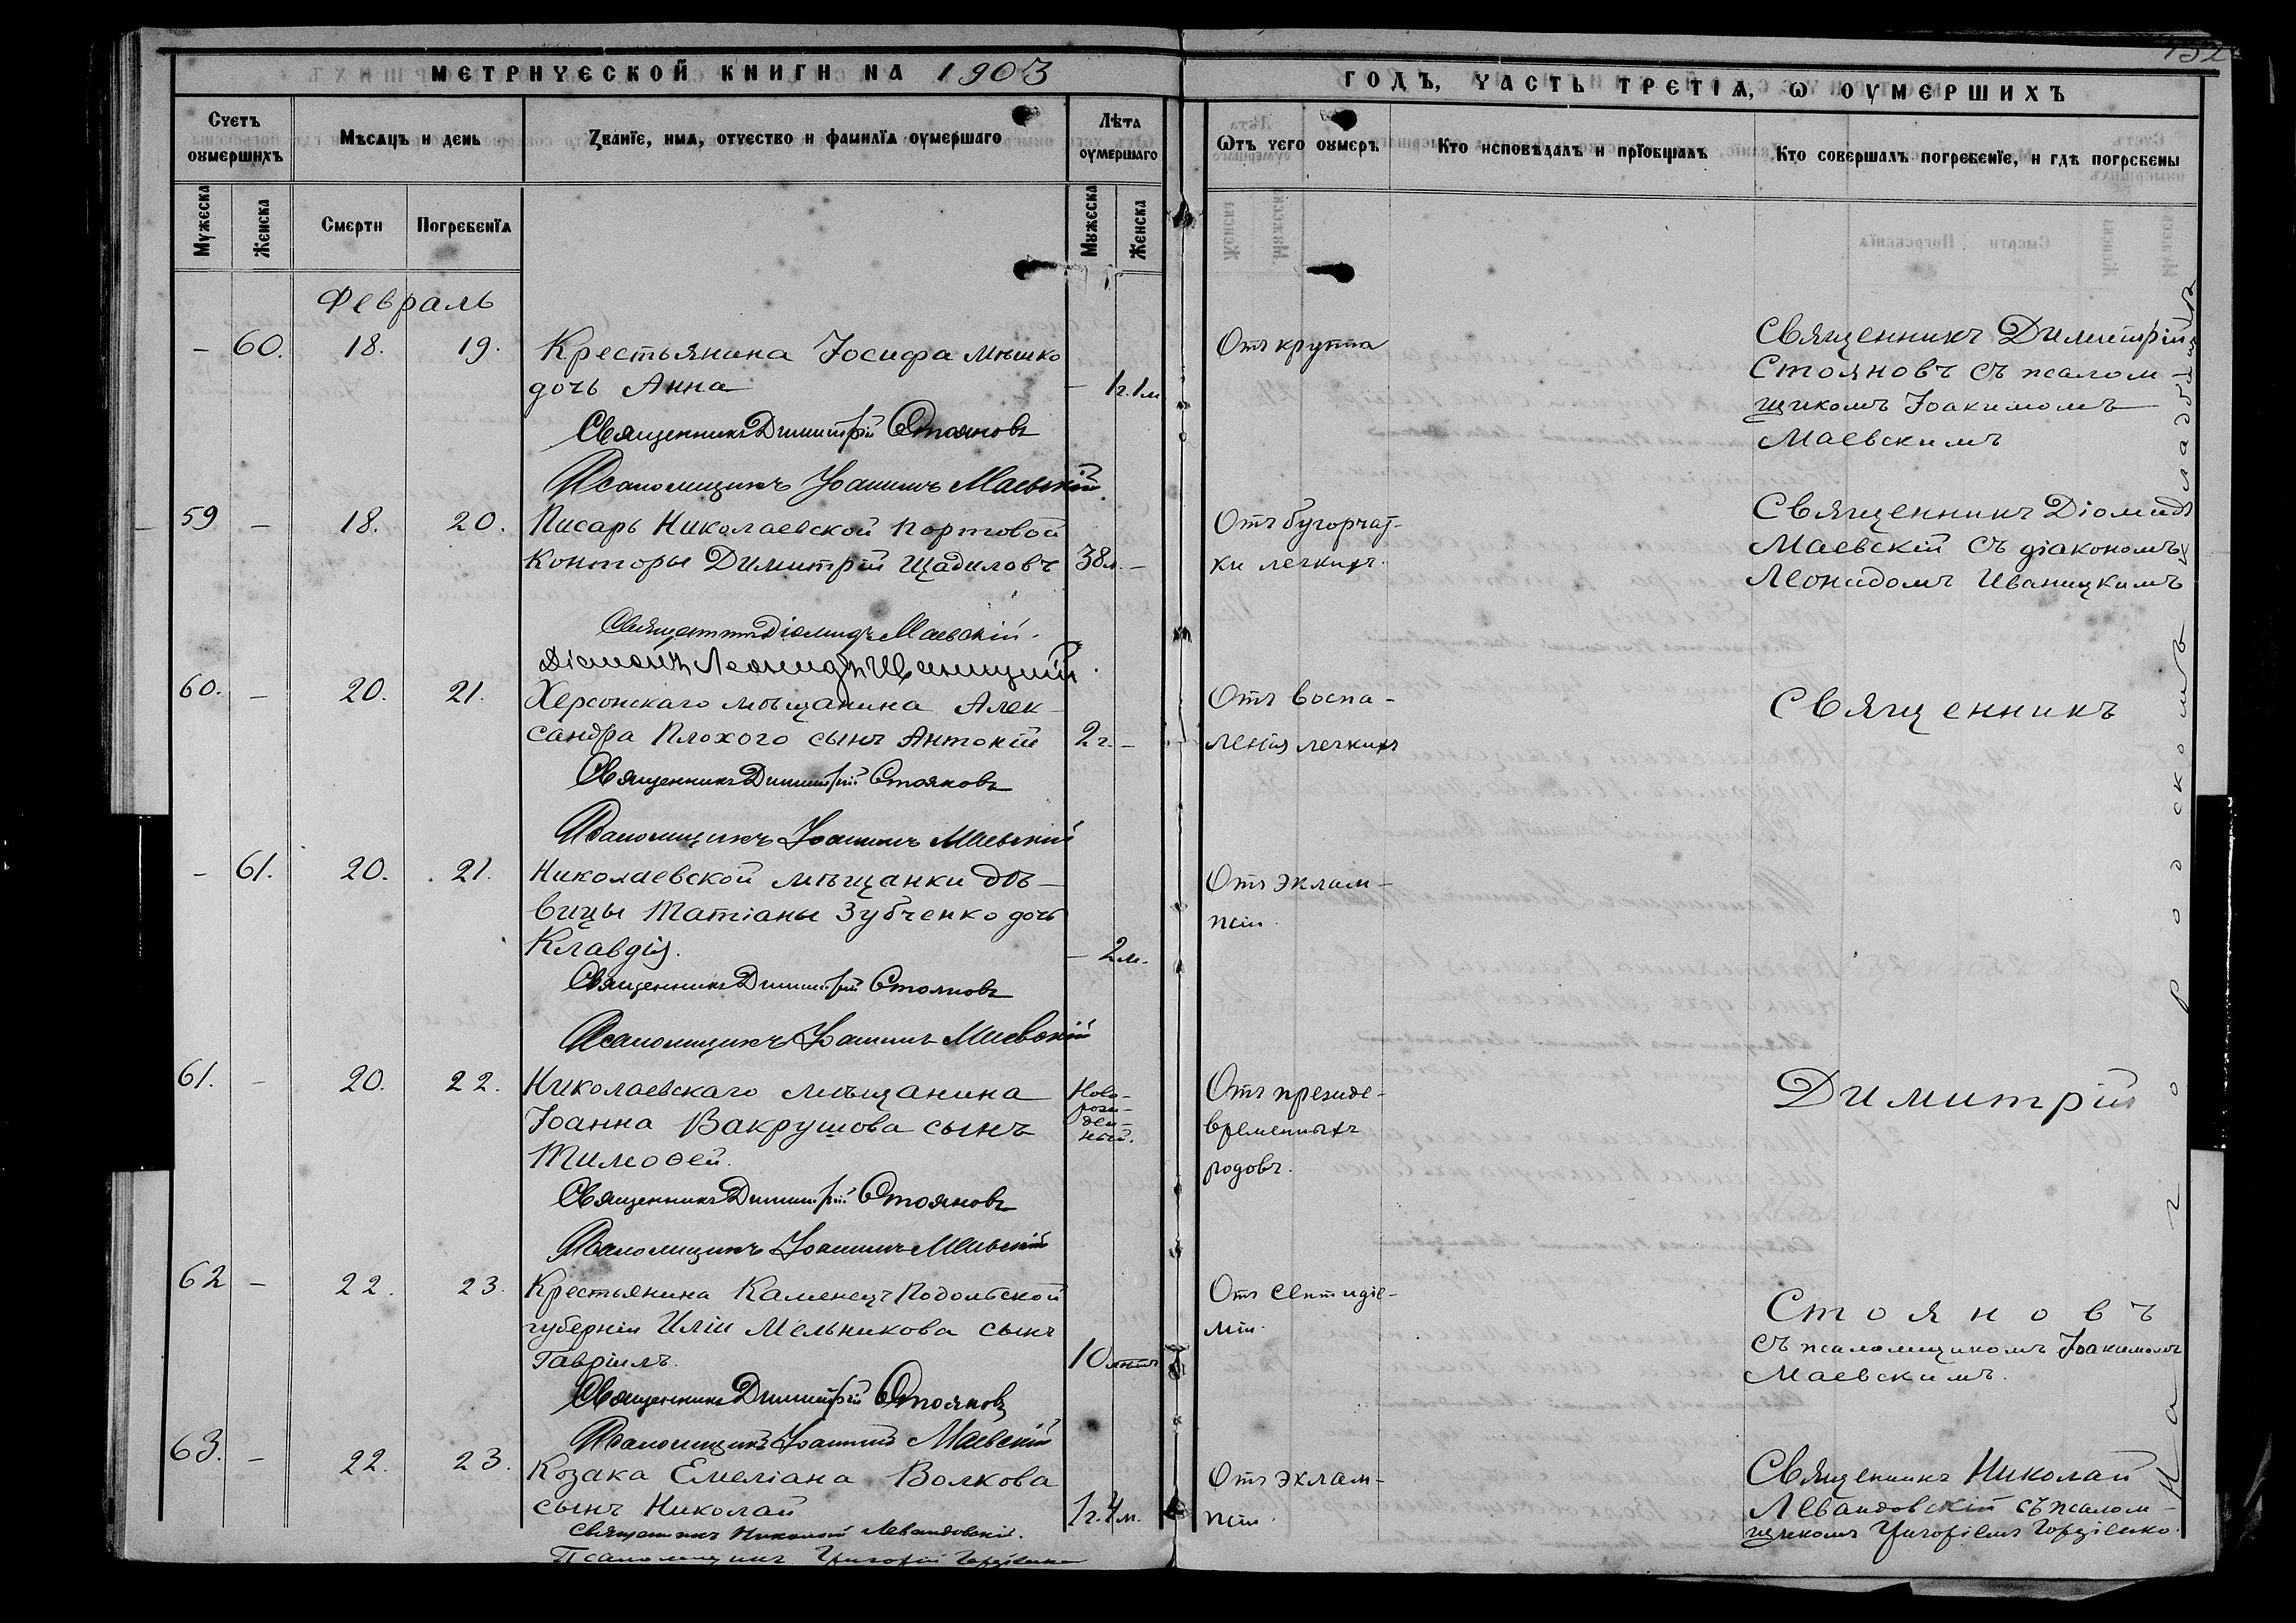 МЕТРИЧЕСКОЙ КНИГИ НА 1903
ГОДЪ, ЧАСТЬ ТРЕТІѦ, Ѡ ОУМЕРШИХЪ
Счетъ оумершихъ
Мѣсяцъ и день
Званїе, имѧ, отчество и фамилїѧ оумершаго
Лѣта оумершаго
Ѿтъ чего оумеръ
Кто исповѣдалъ и прїобщалъ
Кто совершалъ погребенїе, и гдѣ погребены
Мужеска
Женска
Смерти
Погребенїѧ
Мужеска
Женска
Февраль
– 60. 18. 19. Крестьянина Іосифа Мышко
дочь Анна – 1г. 1м
Священникъ Димитрій Стояновъ
Псаломщикъ Іоакимъ Маевскій
Отъ крупа
Священникъ Димитрій
Стояновъ съ псалом-
щикомъ Іоакимомъ
Маевскимъ
59 – 18. 20. Писарь Николаевской Портовой
Конторы Димитрій Щадиловъ 38л. –
Священникъ Діомидъ Маевскій.
Діаконъ Леонидъ Иваницкій.
Отъ бугорчат-
ки легкихъ.
Священникъ Діомидъ
Маевскій съ діакономъ
Леонидомъ Иваницкимъ
60. – 20. 21. Херсонскаго мѣщанина Алек-
сандра Плохого сынъ Антоній 2г. –
Священникъ Димитрій Стояновъ
Псаломщикъ Іоакимъ Маевскій
Отъ воспа-
ленія легкихъ
Священникъ
– 61. 20. 21. Николаевской мѣщанки дѣ-
вицы Татіаны Зубченко дочь
Клавдія. – 2м.
Священникъ Димитрій Стояновъ
Псаломщикъ Іоакимъ Маевскій
Отъ эклам-
псіи.
61. – 20. 22. Николаевскаго мѣщанина
Іоанна Вакрушова сынъ
Тимоѳей.
Ново-
рож-
ден-
ный.
Священникъ Димитрій Стояновъ
Псаломщикъ Іоакимъ Маевскій
Отъ прежде-
временныхъ
родовъ.
Димитрій
62 – 22. 23. Крестьянина Каменецъ Подольской
губерніи Иліи Мельникова сынъ
Гавріилъ. 10 лѣтъ
Священникъ Димитрій Стояновъ
Псаломщикъ Іоакимъ Маевскій
Отъ септидіе-
міи.
Стояновъ
съ псаломщикомъ Іоакимомъ
Маевскимъ.
63. – 22. 23. Козака Емеліана Волкова
сынъ Николай 1г. 4м.
Священникъ Николай Левандовскій.
Псаломщикъ Григорій Гордіенко
Отъ эклам-
псіи.
Священникъ Николай
Левандовскій съ псалом-
щикомъ Григоріемъ Гордіенко.
На городскомъ кладбищѣ